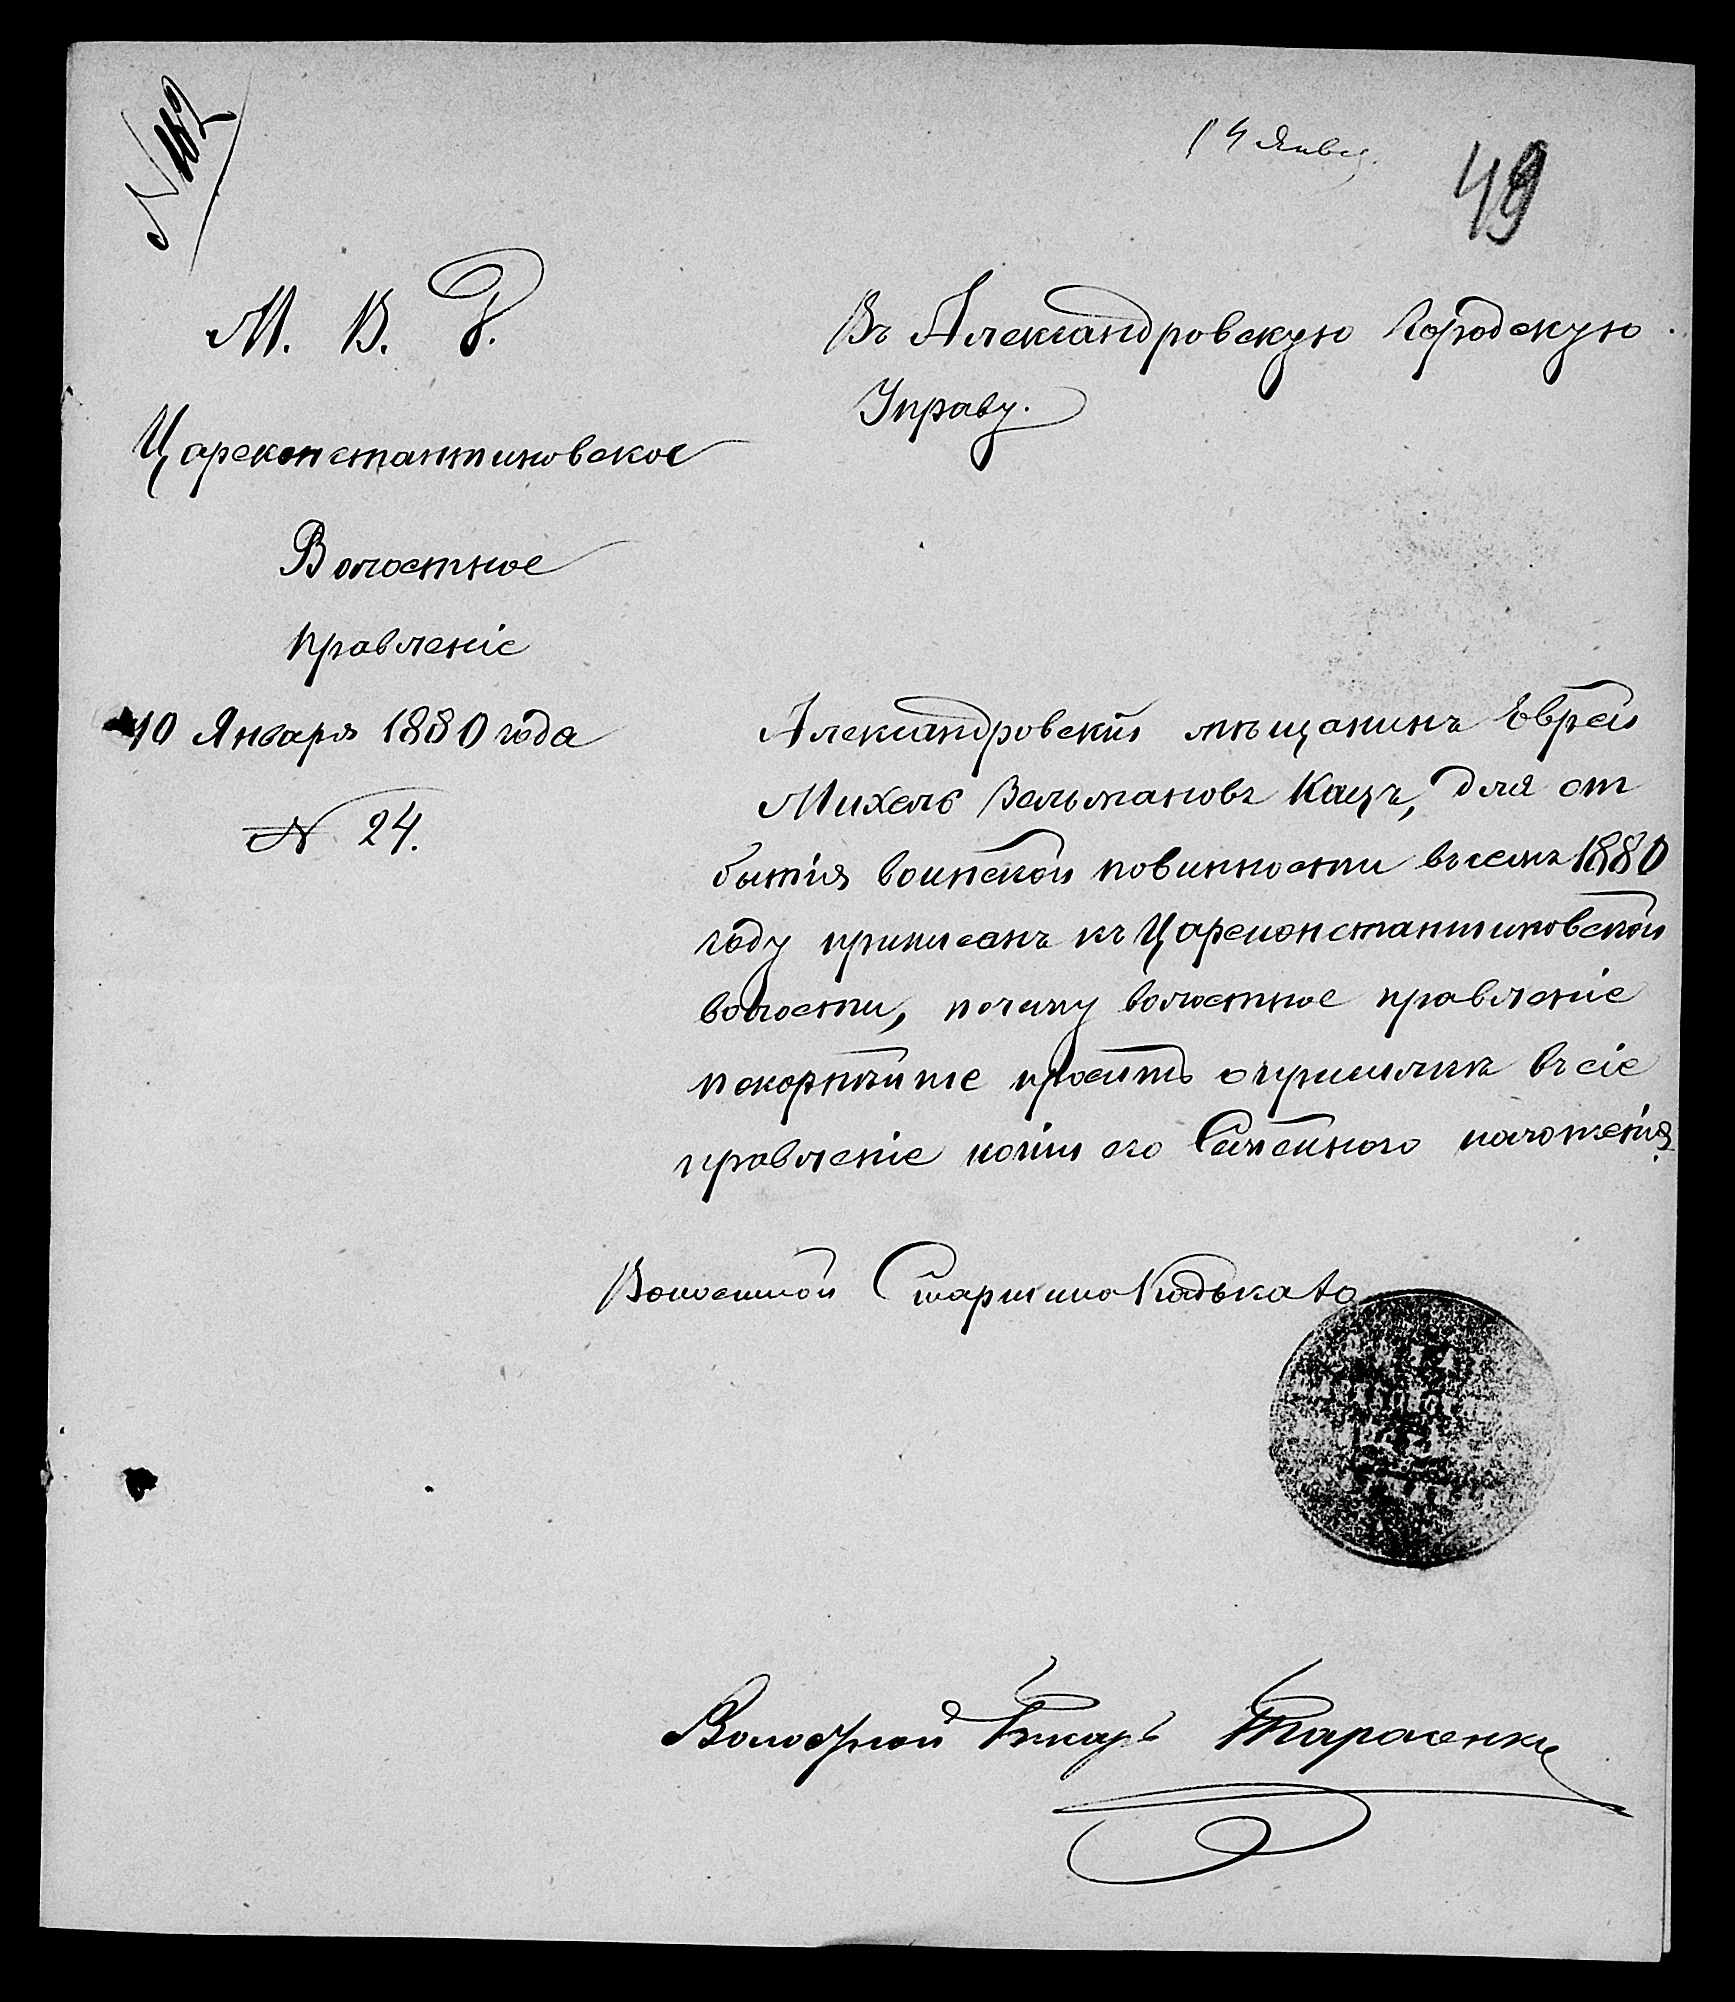 N 182
14 Январ.
49
М. В. Д.
Цареконстантиновское
Волостное
правленіе
10 Января 1880 года
N 24.
Въ Александровскую Городскую
Управу.
Александровскій мѣщанинъ Еврей
Михель Зельмановъ Кацъ, для от
бытія воинской повинности въ семъ 1880
году приписанъ къ Цареконстантиновской
волости, почему волостное правленіе
покорнѣйше проситъ о присылкѣ въ сіе
правленіе копіи его Семейного положенія.
Волостной Старшина
Волостной Писарь Тарасенко